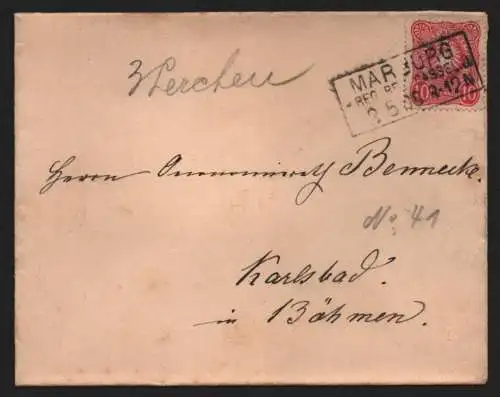 3 Lerchen
MARBURG
REG. BEZ. CASSEL
2 5 8-12 N
10 10
Herrn Oeconomierath Bennecke.
No. 41
Karlsbad.
in Böhmen.